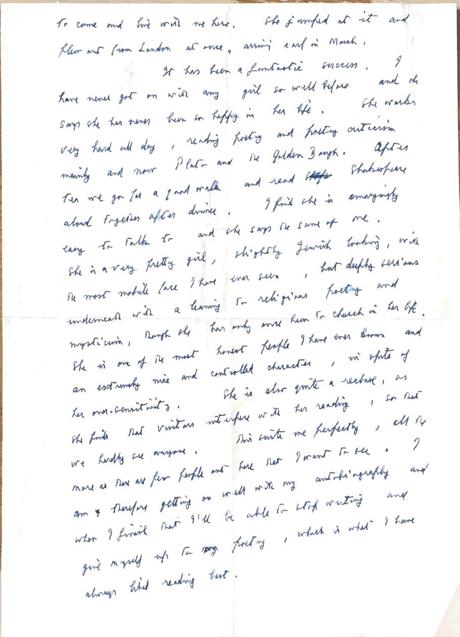 to come and live with me here. She jumped at it and
flew out from London at once, arriving early in March.
It has been a fantastic success. I
have never got on with any girl so well before and she
says she has never been so happy in her life. She works
very hard all day, reading poetry and poetry criticism
mainly and now Plato and the Golden Bough. After
tea we go for a good walk and read Shakespeare
aloud together after dinner. I find she is amazingly
easy to talk to and she says the same of me.
She is a very pretty girl, slightly Jewish looking, with
the most mobile face I have ever seen, but deeply serious
underneath with a leaning to religious poetry and
mysticism, though she has only once been to church in her life.
She is one of the most honest people I have ever known and
an extremely nice and controlled character, in spite of
her over-sensitivity. She is also quite a recluse, as
she finds that visitors interfere with her reading, so that
we hardly see anyone. This suits me perfectly, all the
more as there are few people out here that I want to see. I
am therefore getting on well with my autobiography and
when I finish that I'll be able to stop writing and
give myself up to poetry, which is what I have
always liked reading best.